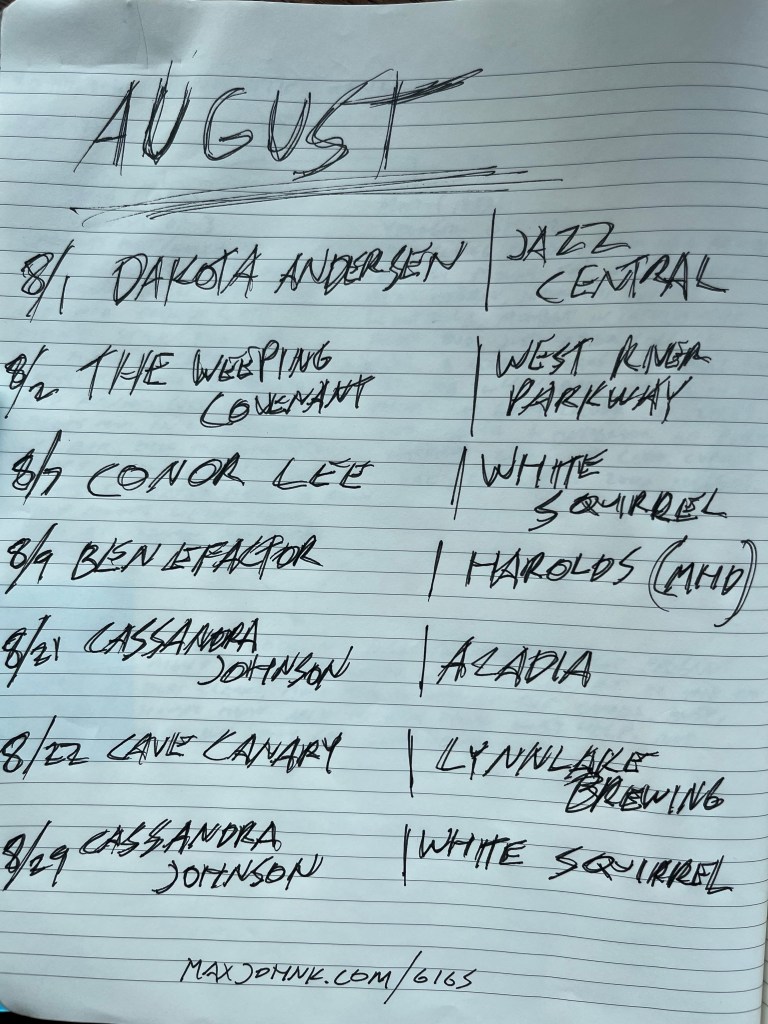 AUGUST
8/1 DAKOTA ANDERSEN | JAZZ
CENTRAL
8/2 THE WEEPING | WEST RIVER
COVENANT PARKWAY
8/7 CONOR LEE | WHITE
SQUIRREL
8/9 BEN LEFACTOR | HAROLDS (MHD)
8/21 CASSANDRA | ACADIA
JOHNSON
8/22 CAVE CANARY | LYNNLAKE
BREWING
8/29 CASSANDRA | WHITE SQUIRREL
JOHNSON
MAXJOHNK.COM/GIGS